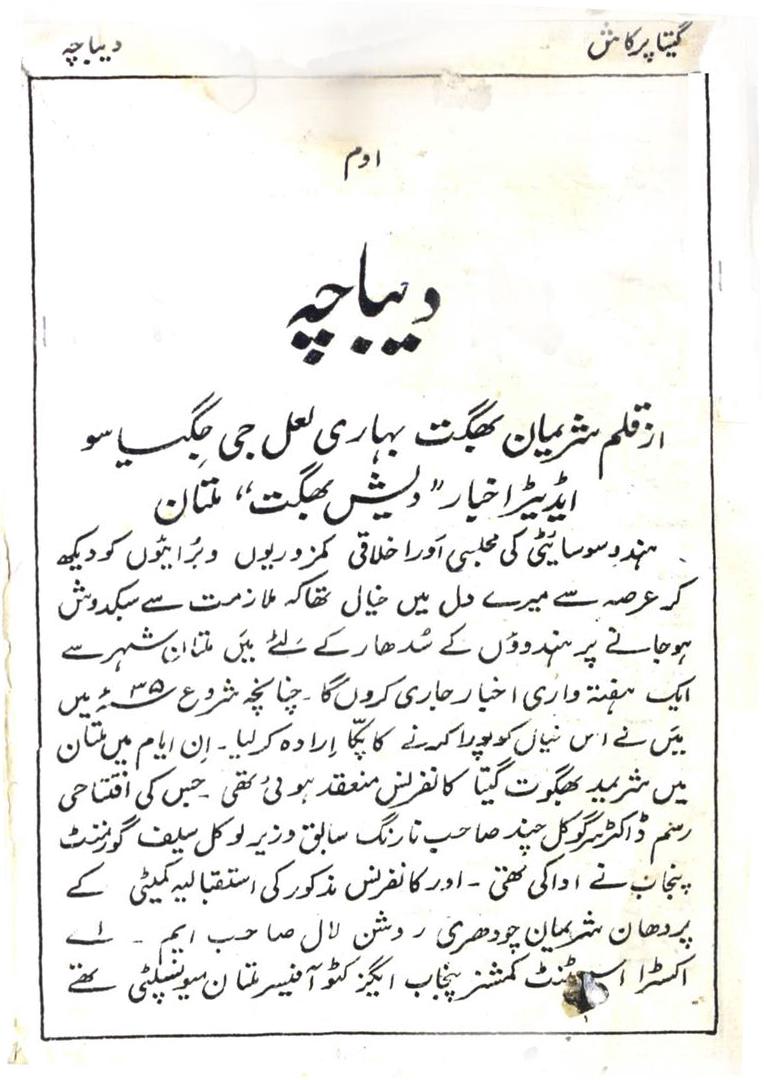 گیتا پرکاش
دیباچہ
اوم
دیباچہ
از قلم شریمان بھگت بہاری لعل جی جگیاسو
ایڈیٹر اخبار "دیش بھگت" ملتان
ہندو سوسائٹی کی مجلسی اور اخلاقی کمزوریوں و برائیوں کو دیکھ
کر عرصہ سے میرے دل میں خیال تھا کہ ملازمت سے سبکدوش
ہو جانے پر ہندوؤں کے سُدھار کے لئے میں ملتان شہر سے
ایک ہفتہ واری اخبار جاری کروں گا۔ چنانچہ شروع ۳۵ئہ میں
میں نے اس خیال کو پورا کرنے کا پکّا اِرادہ کر لیا۔ اِن ایام میں ملتان
میں شریمد بھگوت گیتا کانفرنس منعقد ہوئی تھی۔ جس کی افتتاحی
رسم ڈاکٹر سر گوکل چند صاحب نارنگ سابق وزیر لوکل سیلف گورنمنٹ
پنجاب نے ادا کی تھی۔ اور کانفرنس مذکور کی استقبالیہ کمیٹی کے
پردھان شریمان چودھری روشن لال صاحب ایم۔ اے
اکسٹرا اسسٹنٹ کمشنر پنجاب ایگزکٹو آفیسر ملتان میونسپلٹی تھے
۱